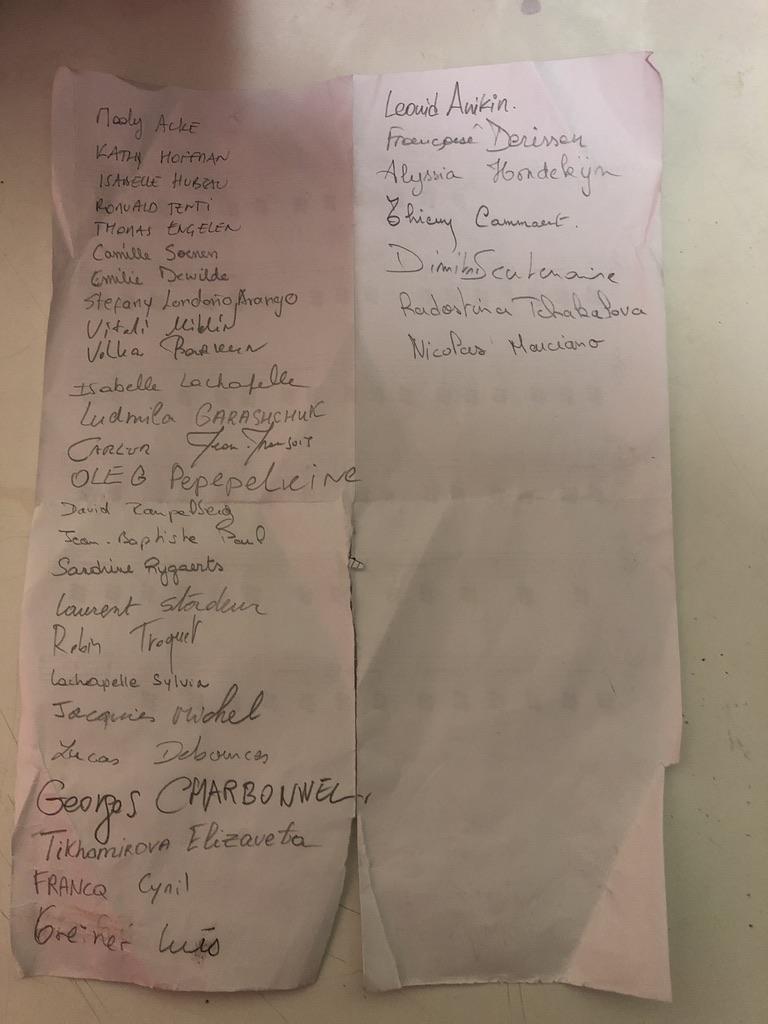 Mady ACKE
KATHY HOFFMAN
ISABELLE HUBEAU
ROMUALD TENTI
THOMAS ENGELEN
Camille Soenen
Emilie Dewilde
Stefany Londoño Arango
Vitali Miklin
Volha
Isabelle Lachapelle
Ludmila GARASHCHUK
CARLUR Jean-François
OLEG Pepepelicine
David Zampelberg
Jean-Baptiste Paul
Sandrine Rygaerts
Laurent Stordeur
Robin Troquet
Lachapelle Sylvin
Jacques Michel
Lucas
Georges CHARBONNEL
TIKHOMIROVA Elizaveta
FRANCQ Cyril
Greiner Luis
Leonid Anikin.
Françoise Derissen
Alyssia Hondekijn
Thierry Cammaert.
Dimitri Scutenaire
Radostina Tchakalova
Nicolas Marciano